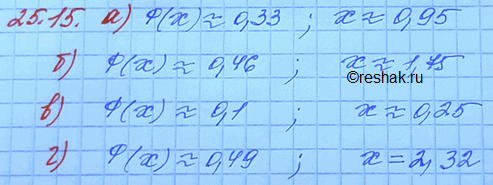 25.15. а) Ф(x) ≈ 0,33 ; x ≈ 0,95
б) Ф(x) ≈ 0,46 ; x ≈ 1,75
©reshak.ru
в) Ф(x) ≈ 0,1 ; x ≈ 0,25
г) Ф(x) ≈ 0,49 ; x = 2,32